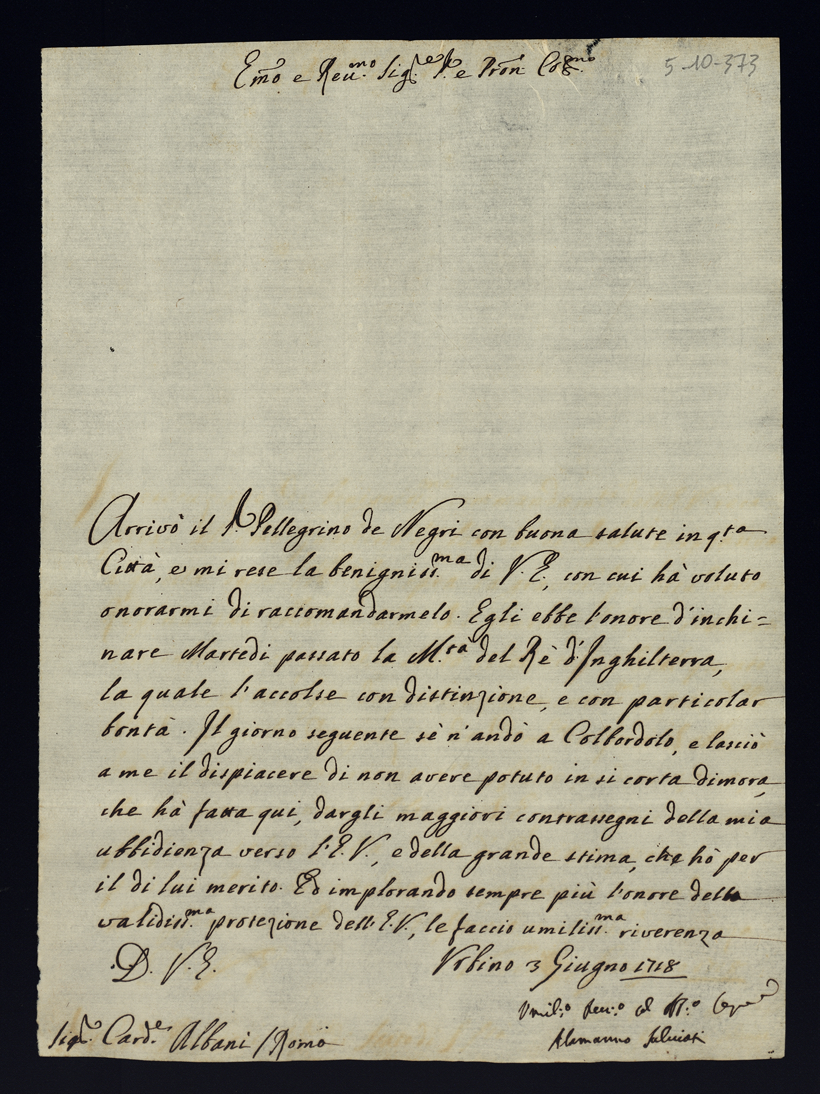 Em̃o e Reu.mo Sig.re S.re e Pron̄ Col.mo
5-10-373
Arrivò il S.r Pellegrino de Negri con buona salute in q.ta
Città, e mi rese la benigniss.ma di V.E., con cui hà voluto
onorarmi di raccomandarmelo. Egli ebbe l'onore d'inchi=
nare Martedi passato la M.tà del Rè d'Inghilterra,
la quale l'accolse con distinzione, e con particolar
bontà. Il giorno seguente sè n'andò a Colbordolo, e lasciò
a me il dispiacere di non avere potuto in si corta dimora,
che hà fatta qui, dargli maggiori contrassegni della mia
ubbidienza verso l'E.V., e della grande stima, che hò per
il di lui merito. Ed implorando sempre più l'onore della
validiss.ma protezione dell'E.V., le faccio umiliss.ma riverenza
D. V.E.
Urbino 3 Giugno 1718
Umil.o Deu.o ed
Alamanno Salviati
Sig.r Card.e Albani / Roma